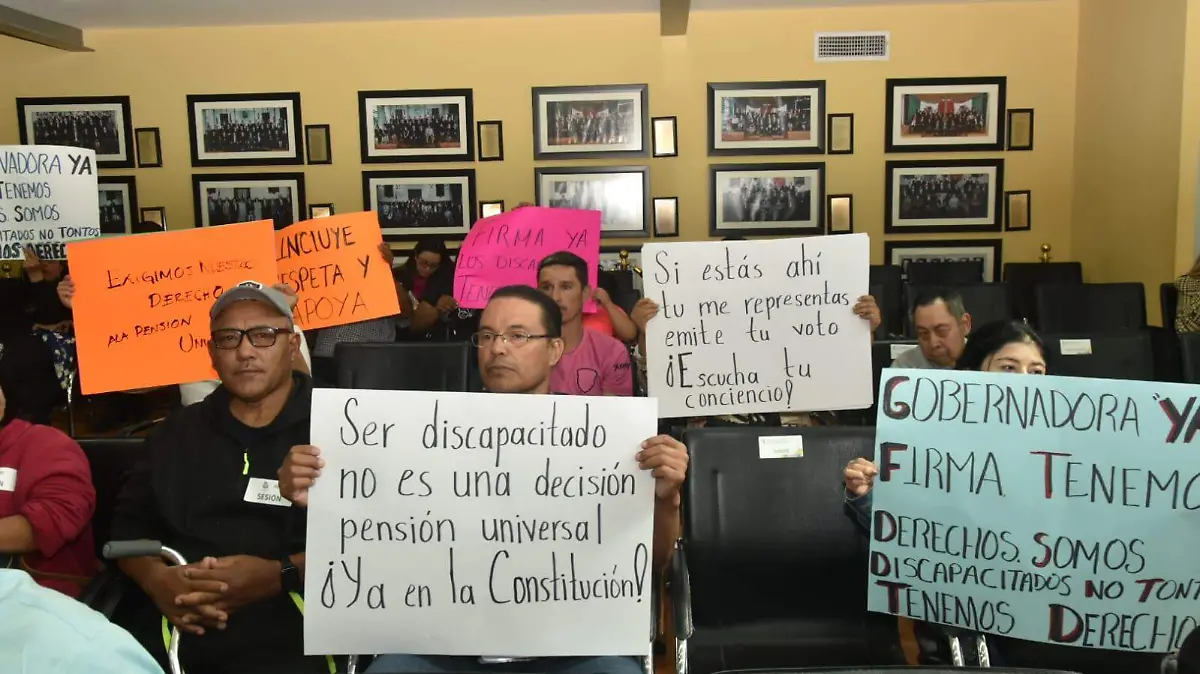 GOBERNADORA YA
TENEMOS
SOMOS
DISCAPACITADOS NO TONTOS
DERECHO
EXIGIMOS NUESTRO
DERECHO
A LA PENSION
INCLUYE
RESPETA Y
APOYA
FIRMA YA
LOS
Si estás ahí
tu me representas
emite tu voto
¡Escucha tu
conciencio!
Ser discapacitado
no es una decisión
pensión universal
¡Ya en la Constitución!
SESIÓN
GOBERNADORA YA
FIRMA TENEMO
DERECHOS. SOMOS
DISCAPACITADOS NO TONT
TENEMOS DERECHO